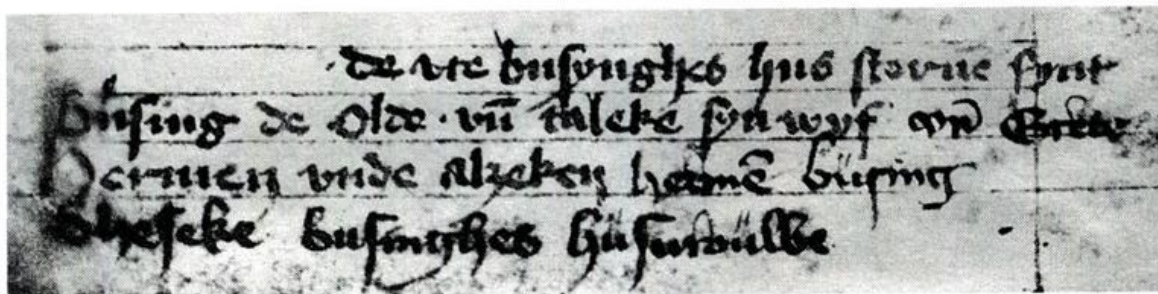 de vte busynghes hus storue synt
busing de Olde · vn̄ taleke syn wyf vn̄ Grete
Hermen vnde alheken hermē büsing
Gheseke businghes hüsuroüwe